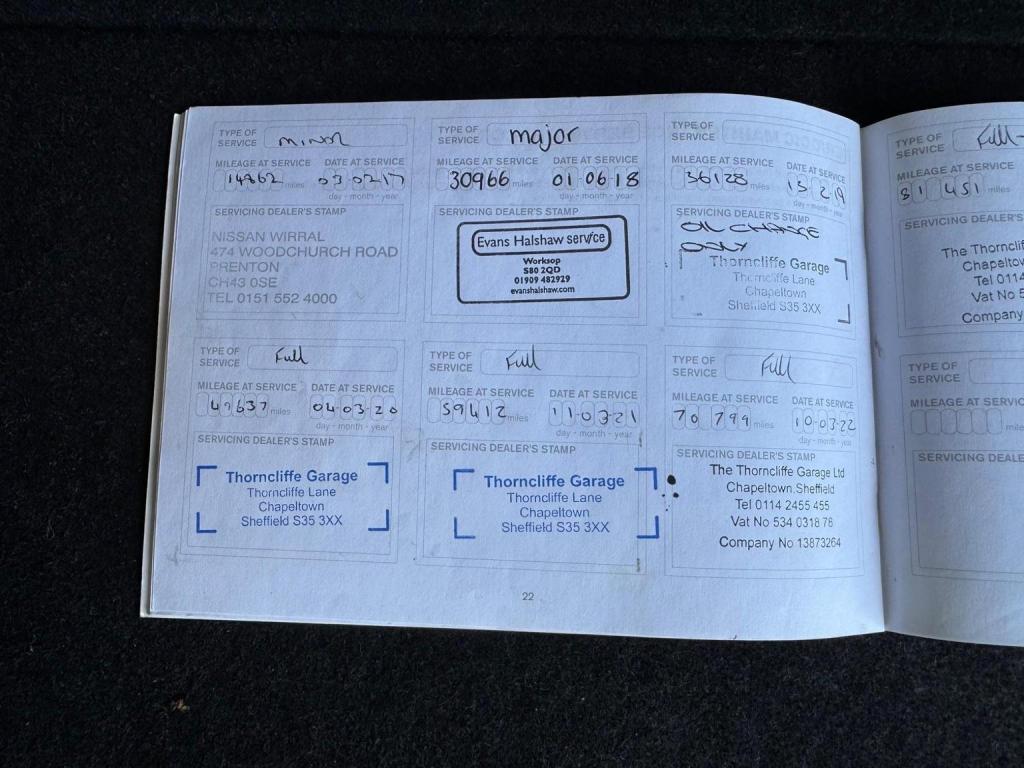 TYPE OF SERVICE minor
MILEAGE AT SERVICE DATE AT SERVICE
14962 miles 03 02 17
day - month - year
SERVICING DEALER'S STAMP
NISSAN WIRRAL
474 WOODCHURCH ROAD
PRENTON
CH43 0SE
TEL 0151 552 4000
TYPE OF SERVICE major
MILEAGE AT SERVICE DATE AT SERVICE
30966 miles 01 06 18
day - month - year
SERVICING DEALER'S STAMP
Evans Halshaw service
Worksop
S80 2QD
01909 482929
evanshalshaw.com
TYPE OF SERVICE
MILEAGE AT SERVICE DATE AT SERVICE
36128 miles 15 2 19
day - month - year
SERVICING DEALER'S STAMP
OIL CHANGE
ONLY
Thorncliffe Garage
Thorncliffe Lane
Chapeltown
Sheffield S35 3XX
TYPE OF SERVICE Full
MILEAGE AT SERVICE DATE AT SERVICE
47637 miles 04-03-20
day - month - year
SERVICING DEALER'S STAMP
Thorncliffe Garage
Thorncliffe Lane
Chapeltown
Sheffield S35 3XX
TYPE OF SERVICE Full
MILEAGE AT SERVICE DATE AT SERVICE
59412 miles 11-03-21
day - month - year
SERVICING DEALER'S STAMP
Thorncliffe Garage
Thorncliffe Lane
Chapeltown
Sheffield S35 3XX
TYPE OF SERVICE Full
MILEAGE AT SERVICE DATE AT SERVICE
70 799 miles 10-03-22
day - month - year
SERVICING DEALER'S STAMP
The Thorncliffe Garage Ltd
Chapeltown.Sheffield
Tel 0114 2455 455
Vat No 534 0318 78
Company No 13873264
22
TYPE OF SERVICE Full
MILEAGE AT SERVICE
81 451 miles
SERVICING DEALER'S
The Thornclif
Chapeltow
Tel 0114
Vat No 5
Company
TYPE OF SERVICE
MILEAGE AT SERVICE
mile
SERVICING DEALE